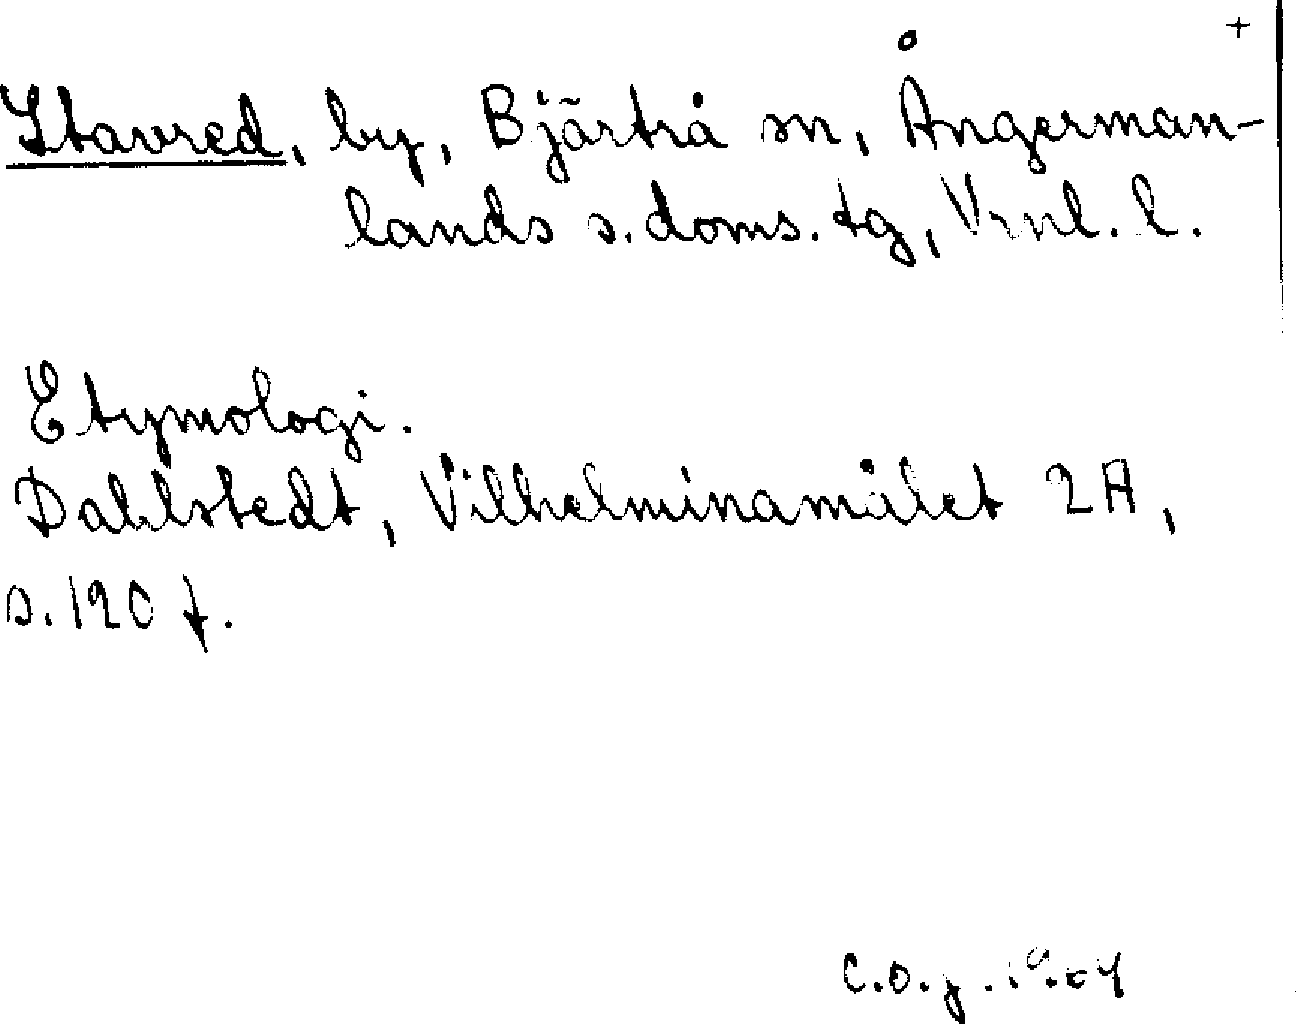 +
Stavred, by, Bjärtrå sn, Ångerman-
lands s. doms. tg, Vrnl. l.
Etymologi.
Dahlstedt, Vilhelminamålet 2A,
s. 120 f.